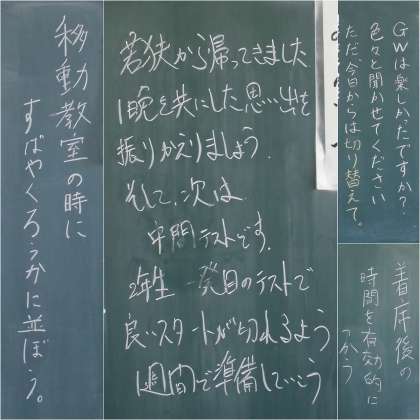 移動教室の時に
すばやくろうかに並ぼう。
若狭から帰ってきました
1晩を共にした思い出を
振りかえりましょう.
そして、次は
中間テストです.
2年生 一発目のテストで
良いスタートが切れるよう
1週間で準備していこう
GWは楽しかったですか?
色々と聞かせてください
ただ、今日からは切り替えて。
着席後の
時間を有効的に
つかう